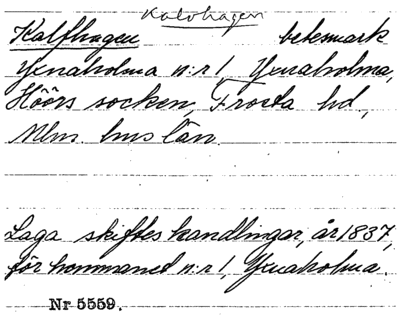 Kalvhagen
Kalfhagen betesmark
Yxnaholma n:r 1, Yxnaholma,
Höörs socken, Frosta hd,
Mlm. hus län.
Laga skifteshandlingar, år 1837,
för hemmanet n:r 1, Yxnaholma.
Nr 5559.